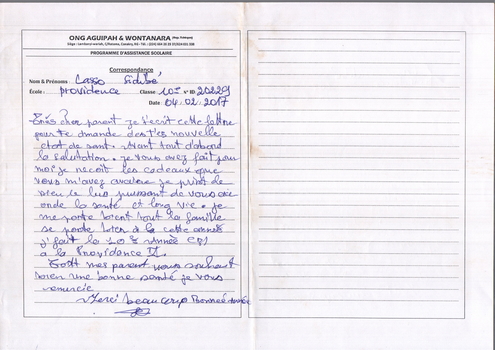 ONG AGUIPAH & WONTANARA
PROGRAMME D'ASSISTANCE SCOLAIRE
Correspondance
Nom & Prénoms : Casso Sidibé
École : providence Classe 10è N° ID 20229
Date : 04.02.2017
très cher parent je t'ecrit cette lettre
pour te demande des t'es nouvelle
etat de sant. Avant tout d'abord
la salutation. je vous avez fait pour
moi je reçoit les cadeaux que
vous m'avez je prier de
vieu le plus puissant de vous
la santé et long vie. je
me porte bient tout la famille
se porte bien à la cette année
j'fait la 10è Année
a la Providence
tout mes parent vous souhait
bien une bonne santé je vous
remercie
Merci beaucoup Bonne année